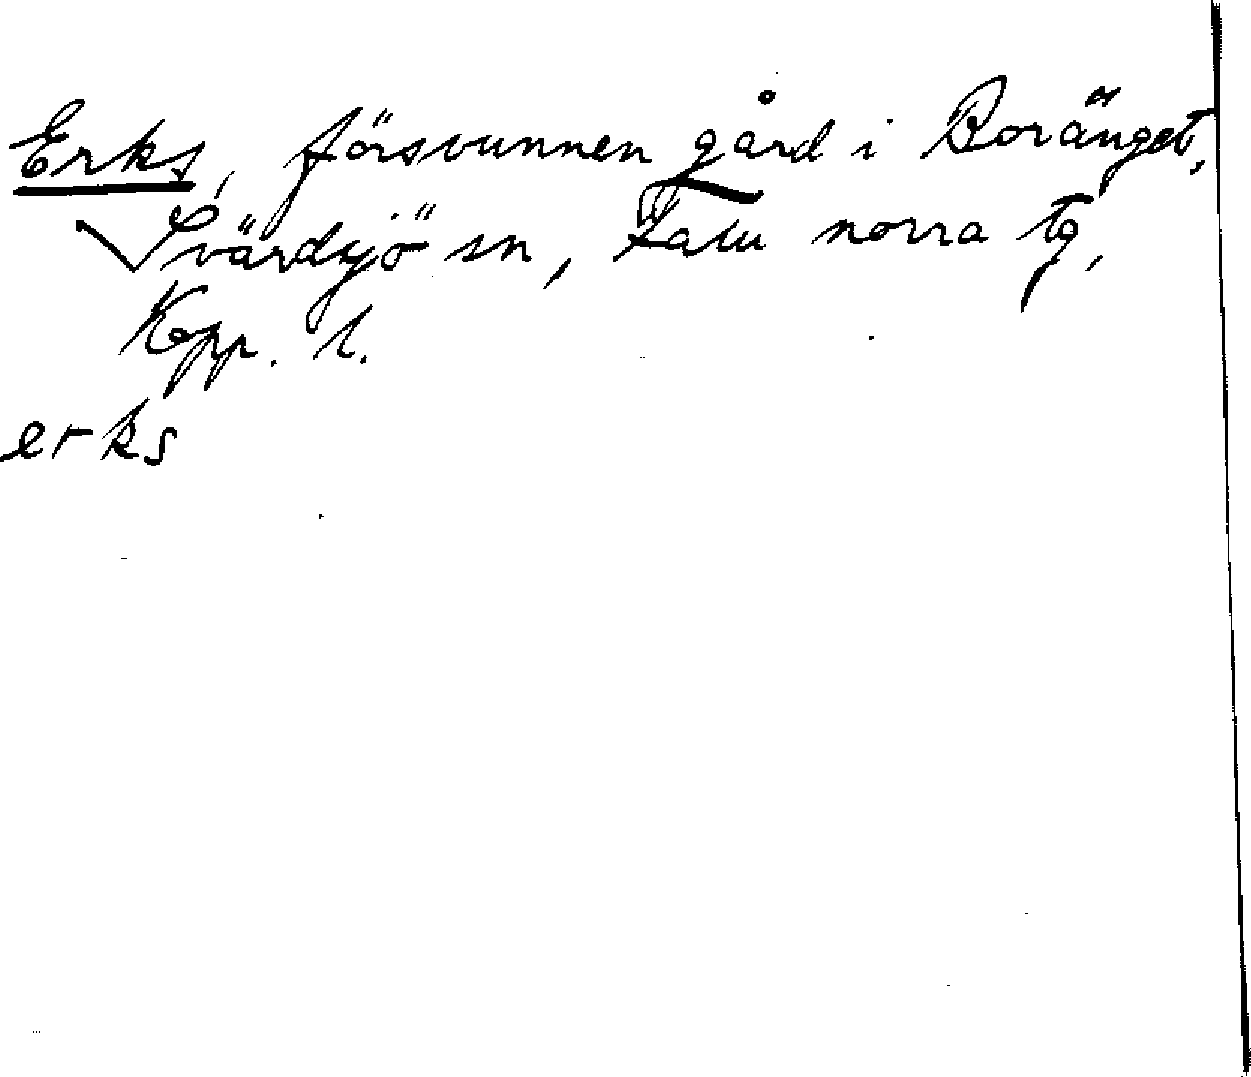 Erks, försvunnen gård i Boränget,
Svärdsjö sn, Falu norra tg,
Kopp. l.
erks